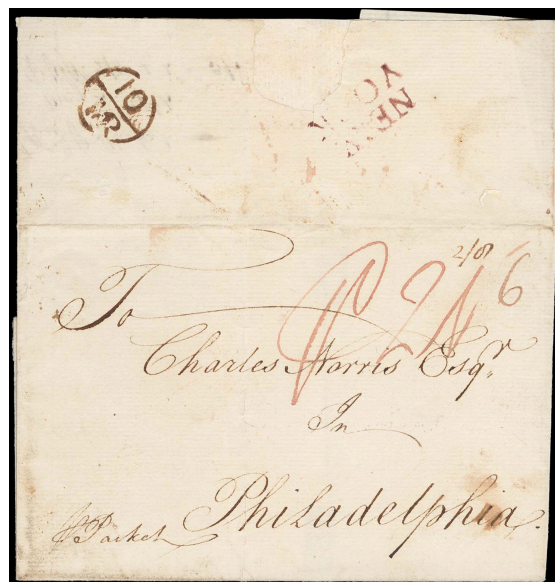 10
NEW
YO
2/8
P 24 6
To
Charles Norris Esqr.
In
Philadelphia.
Packet